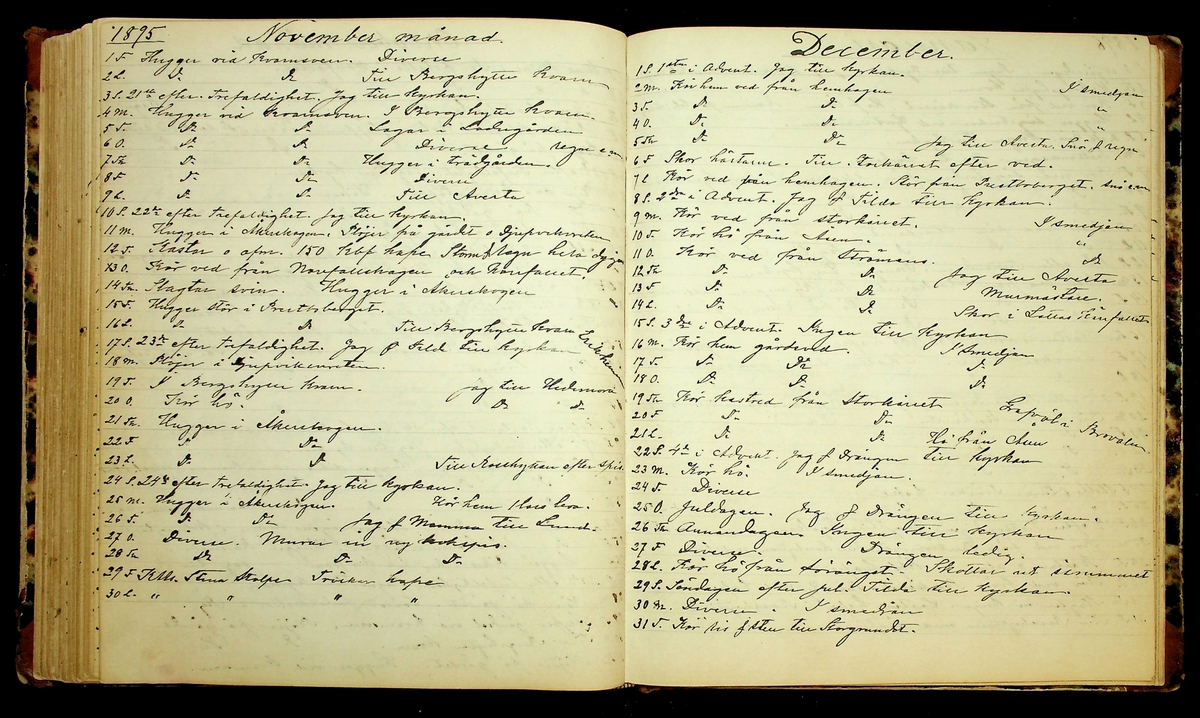 1895 November månad.
1 F. Hugger vid Kvarnsven. Diverse
2 L. Do Do Till Bergshytte kvarn
3 S. 21ste efter Trefaldighet. Jag till kyrkan.
4 M. Hugger vid Kvarnsven. I Bergshytte kvarn.
5 T. Do Do Lagar i Ladugården
6 O. Do Do Diverse regn
7 Th Do Do Hugger i trädgården.
8 F. Do Do Diverse
9 L. Do Do Till Avesta
10 S. 22dre efter trefaldighet. Jag till kyrkan.
11 M. Hugger i Åkerskogen. Plöjer på gärdet o
12 T. Kastar o afm. 150 Kbf hafre. Storm & regn hela dygnet
13 O. Kör ved från och
14 Th. Slagtar svin. Hugger i Åkerskogen
15 F. Hugger stör i Prestberget.
16 L. Do Do Till Bergshytte kvarn
17 S. 23de efter trefaldighet. Jag & till kyrkan
18 M. Plöjer i
19 T. I Bergshytte kvarn. jag till Hedemora
20 O. Kör hö. Do Do
21 Th. Hugger i Åkerskogen.
22 F. Do Do
23 L. Do Do Till efter spis
24 S. 24de efter trefaldighet. Jag till kyrkan.
25 M. Hugger i Åkerskogen. Kör hem
26 T. Do Do Jag & Mamma till
27 O. Diverse. Murar in ny kokspis.
28 Th Do Do Do
29 F. Stina Stolpe Tröskar hafre
30 L. " " " "
December.
1 S. 1sta i Advent. Jag till kyrkan.
2 M. Kör hem ved från hemhagen I smedjan
3 T. Do Do "
4 O. Do Do "
5 Th Do Do Jag till Avesta. Snö & regn
6 F Skor hästarne. Till efter ved.
7 L Kör ved från hemhagen. Stör från Prestberget.
8 S. 2dra i Advent. Jag & Tilda till kyrkan.
9 M. Kör ved från storkärret. I smedjan
10 T. Kör hö från Åsen. "
11 O. Kör ved från Ströméns. Do
12 Th Do Do Jag till Avesta
13 F. Do Do Murmästare.
14 L. Do Do Skor i
15 S. 3dje i Advent. Ingen till kyrkan
16 M. Kör hem gärdsved. I smedjan
17 T. Do Do Do
18 O. Do Do Do
19 Th Kör kastved från storkärret Grafvöl i
20 F Do Do
21 L. Do Do Hö från Åsen
22 S. 4de i Advent. Jag & Drängen till kyrkan
23 M. Kör hö. I smedjan.
24 T. Diverse
25 O. Juldagen. Jag & Drängen till kyrkan.
26 Th Annandagen Ingen till kyrkan
27 F Diverse. Drängen ledig.
28 L. Kör hö från Skottar
29 S. Söndagen efter Jul. Tilda till kyrkan.
30 M. Diverse. I smedjan
31 T. Kör till Storgrundet.